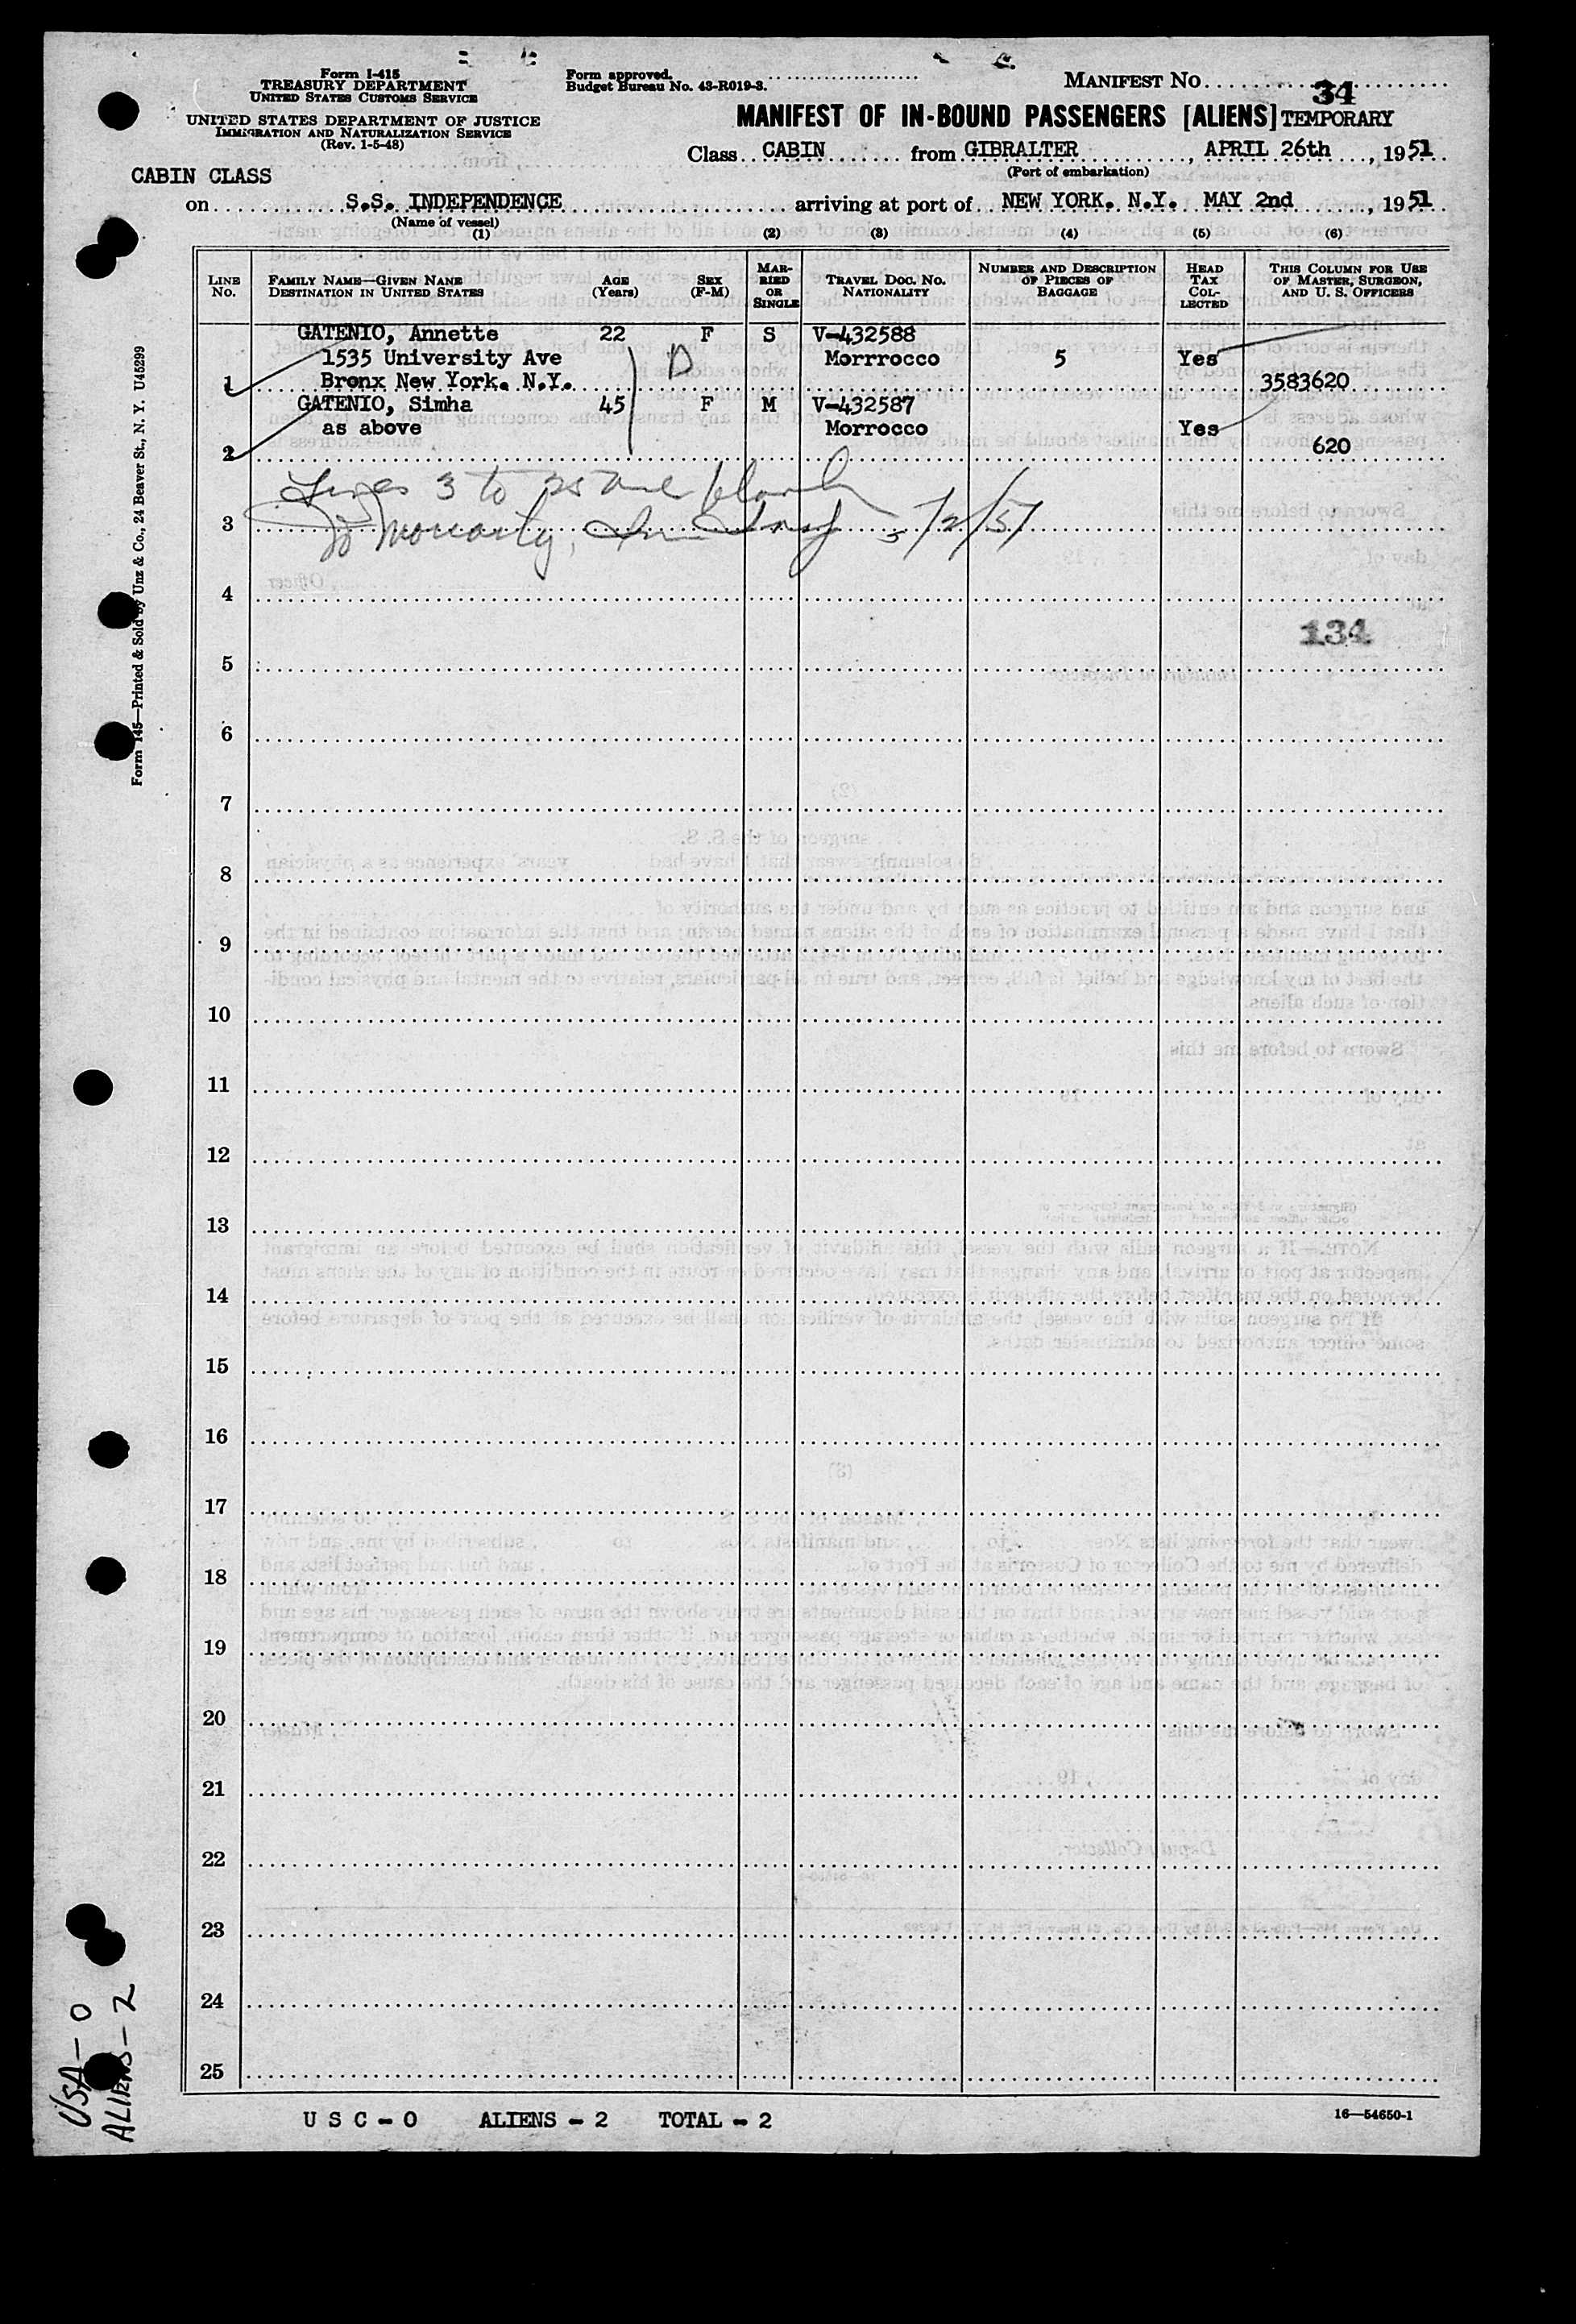 Form I-415
TREASURY DEPARTMENT
UNITED STATES CUSTOMS SERVICE
UNITED STATES DEPARTMENT OF JUSTICE
IMMIGRATION AND NATURALIZATION SERVICE
(Rev. 1-5-48)
Form approved.
Budget Bureau No. 43-R019-3.
MANIFEST NO. 34
MANIFEST OF IN-BOUND PASSENGERS [ALIENS] TEMPORARY
Class CABIN from GIBRALTER, APRIL 26th, 1951
(Port of embarkation)
CABIN CLASS
on S.S. INDEPENDENCE arriving at port of NEW YORK. N.Y. MAY 2nd, 1951
(Name of vessel)
(1) (2) (3) (4) (5) (6)
LINE NO. FAMILY NAME—GIVEN NAME DESTINATION IN UNITED STATES AGE (Years) SEX (F-M) MARRIED OR SINGLE TRAVEL DOC. NO. NATIONALITY NUMBER AND DESCRIPTION OF PIECES OF BAGGAGE HEAD TAX COLLECTED THIS COLUMN FOR USE OF MASTER, SURGEON, AND U. S. OFFICERS
GATENIO, Annette 22 F S V-432588
1535 University Ave D Morrrocco 5 Yes
1 Bronx New York. N.Y. 3583620
GATENIO, Simha 45 F M V-432587
as above Morrocco Yes
2 620
Lines 3 to 25 are blank
3 Moriarty, 5/2/51
4
134
5
6
7
8
9
10
11
12
13
14
15
16
17
18
19
20
21
22
23
24
25
U S C - 0 ALIENS - 2 TOTAL - 2
16—54650-1
Form 145—Printed & Sold by Unz & Co., 24 Beaver St., N. Y. U45299
USA - 0
ALIENS - 2